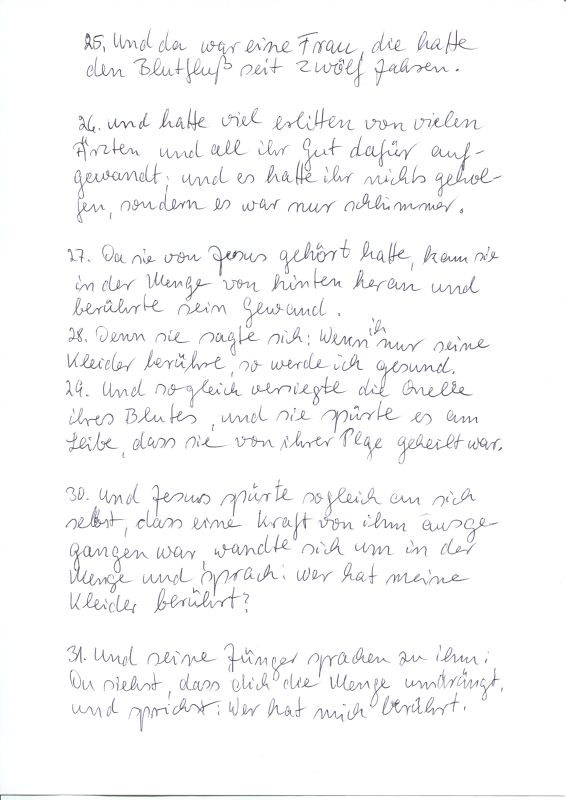 25. Und da war eine Frau, die hatte
den Blutfluß seit zwölf Jahren.
26. und hatte viel erlitten von vielen
Ärzten und all ihr Gut dafür auf-
gewandt; und es hatte ihr nichts gehol-
fen, sondern es war nur schlimmer.
27. Da sie von Jesus gehört hatte, kam sie
in der Menge von hinten heran und
berührte sein Gewand.
28. Denn sie sagte sich: Wenn ich nur seine
Kleider berühre, so werde ich gesund.
29. Und sogleich versiegte die Quelle
ihres Blutes, und sie spürte es am
Leibe, dass sie von ihrer Plage geheilt war.
30. Und Jesus spürte sogleich an sich
selbst, dass eine Kraft von ihm ausge-
gangen war, wandte sich um in der
Menge und sprach: Wer hat meine
Kleider berührt?
31. Und seine Jünger sprachen zu ihm:
Du siehst, dass dich die Menge umdrängt,
und sprichst: Wer hat mich berührt.